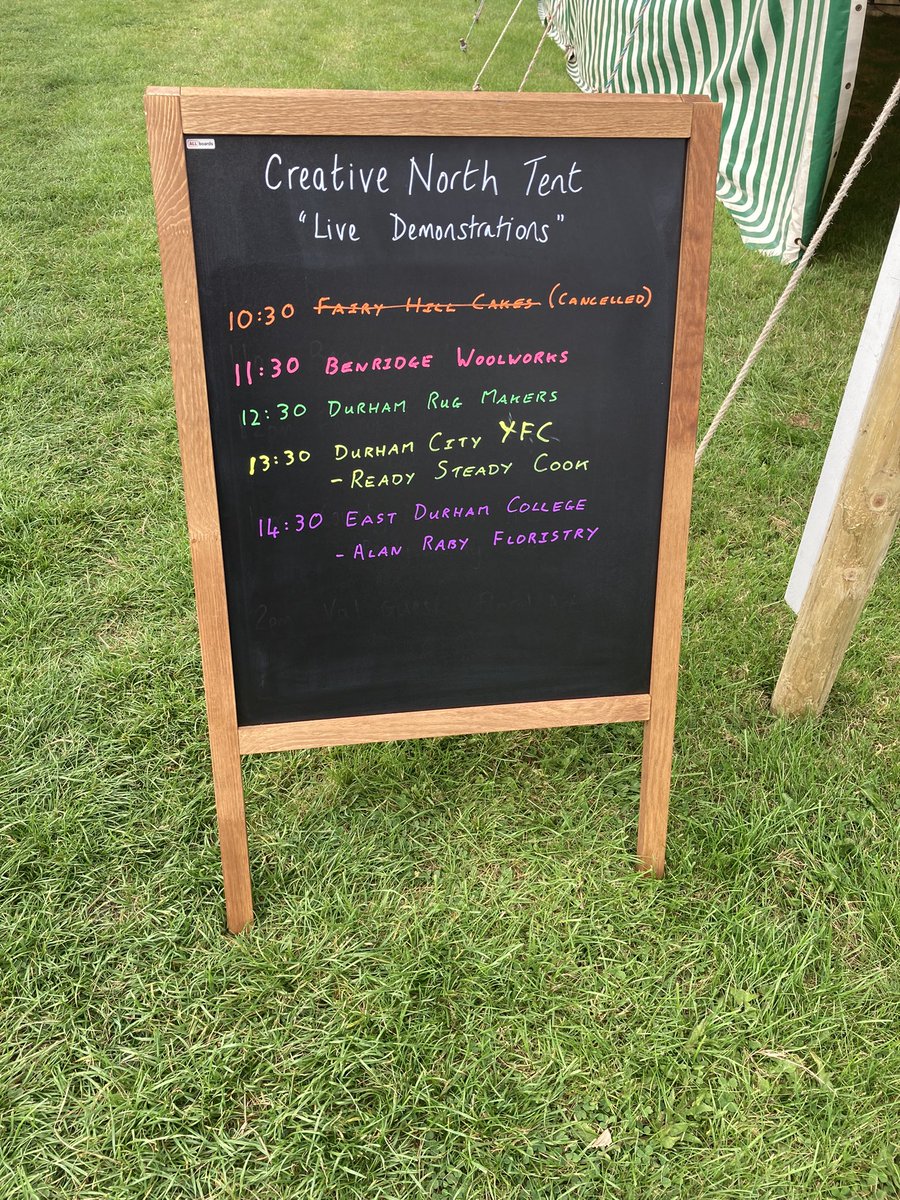 ALL boards
Creative North Tent
"Live Demonstrations"
10:30 FAIRY HILL CAKES (CANCELLED)
11:30 BENRIDGE WOOLWORKS
12:30 DURHAM RUG MAKERS
13:30 DURHAM CITY YFC
- READY STEADY COOK
14:30 EAST DURHAM COLLEGE
- ALAN RABY FLORISTRY
2pm